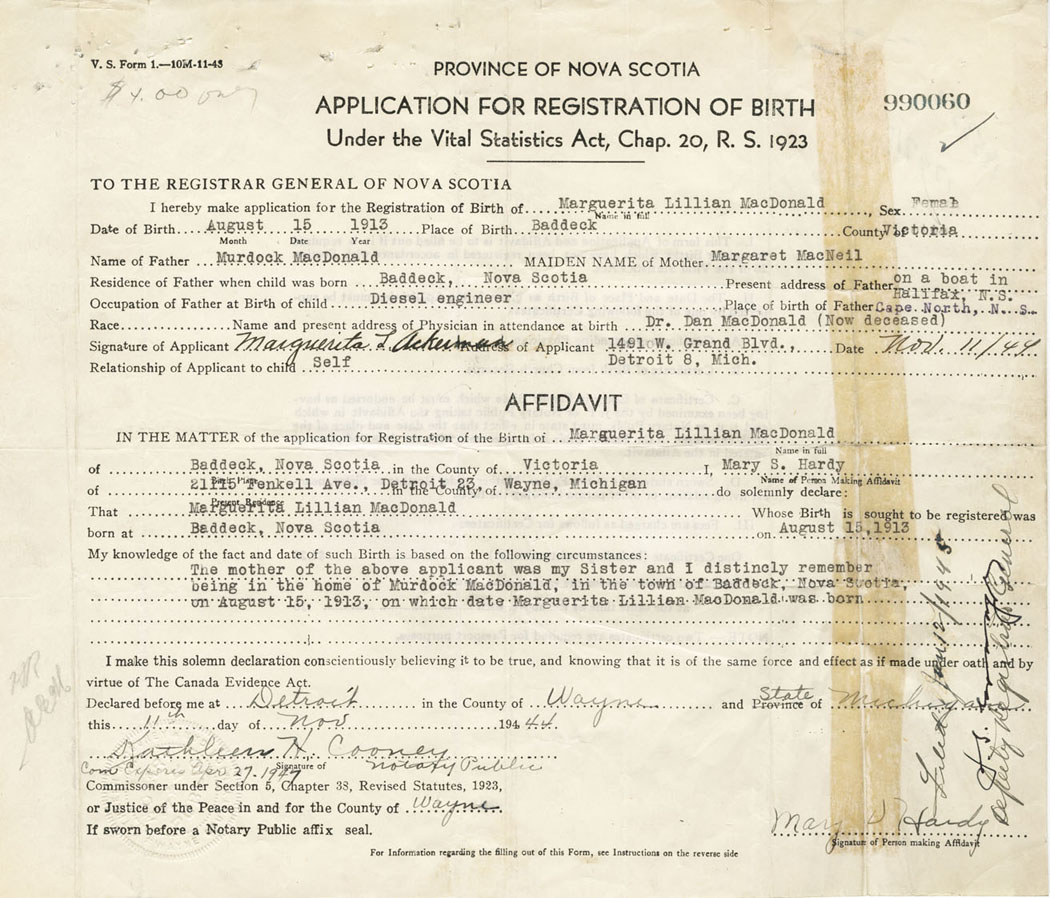 V. S. Form 1.—10M-11-43
$4.00 only
PROVINCE OF NOVA SCOTIA
APPLICATION FOR REGISTRATION OF BIRTH
990060
Under the Vital Statistics Act, Chap. 20, R. S. 1923
TO THE REGISTRAR GENERAL OF NOVA SCOTIA
I hereby make application for the Registration of Birth of Marguerita Lillian MacDonald, Sex Female
Name in full
Date of Birth August 15 1913 Place of Birth Baddeck County of Victoria
Month Date Year
Name of Father Murdock MacDonald MAIDEN NAME of Mother Margaret MacNeil
Residence of Father when child was born Baddeck, Nova Scotia Present address of Father on a boat in Halifax, N.S.
Occupation of Father at Birth of child Diesel engineer Place of birth of Father Cape North, N. S.
Race Name and present address of Physician in attendance at birth Dr. Dan MacDonald (Now deceased)
Signature of Applicant Marguerita L Ackerman Address of Applicant 1491 W. Grand Blvd., Date Nov. 11/44
Relationship of Applicant to child Self Detroit 8, Mich.
AFFIDAVIT
IN THE MATTER of the application for Registration of the Birth of Marguerita Lillian MacDonald
Name in full
of Baddeck, Nova Scotia in the County of Victoria I, Mary S. Hardy
Birth Place Name of Person Making Affidavit
of 21115 Fenkell Ave., Detroit 23, in the County of Wayne, Michigan do solemnly declare:
Present Residence
That Marguerita Lillian MacDonald Whose Birth is sought to be registered was
born at Baddeck, Nova Scotia on August 15, 1913
My knowledge of the fact and date of such Birth is based on the following circumstances:
The mother of the above applicant was my Sister and I distincly remember
being in the home of Murdock MacDonald, in the town of Baddeck, Nova Scotia,
on August 15, 1913, on which date Marguerita Lillian MacDonald was born
I make this solemn declaration conscientiously believing it to be true, and knowing that it is of the same force and effect as if made under oath and by
virtue of The Canada Evidence Act.
Declared before me at Detroit in the County of Wayne and Province of State Michigan
this 11th day of Nov 194 44
Kathleen H. Cooney
Com Expires Apr 27. 1947 Signature of Notary Public
Commissoner under Section 5, Chapter 38, Revised Statutes, 1923,
or Justice of the Peace in and for the County of Wayne
If sworn before a Notary Public affix seal.
Mary S Hardy
Signature of Person making Affidavit
For Information regarding the filling out of this Form, see Instructions on the reverse side
Filed Jan 12/1945
Deputy Registrar General